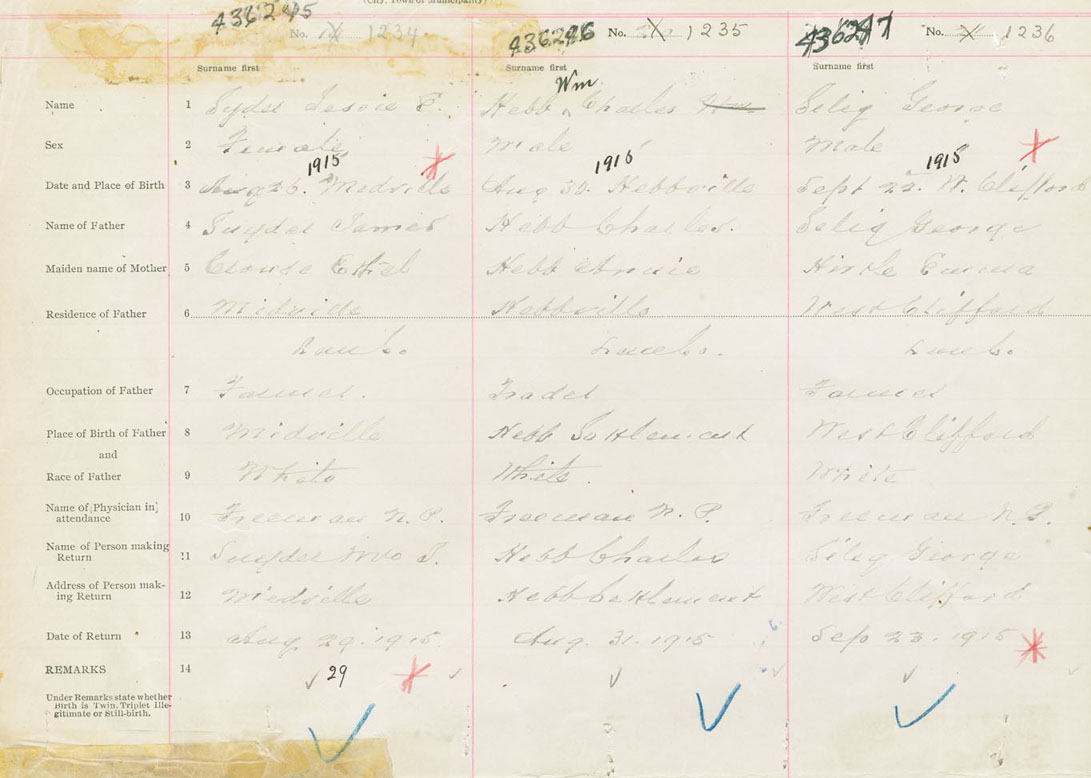 (City, Town or Municipality)
436245 No. 1234 436246 No. 1235 436247 No. 1236
Surname first Surname first Surname first
Wm
Name 1 Jessie E. Hebb ^ Charles Wm Selig George
Sex 2 Female Male Male
1915 1915 1915
Date and Place of Birth 3 Aug 25. Midville Aug 30. Hebbville Sept 22. W. Clifford
Name of Father 4 Snyder James Hebb Charles. Selig George
Maiden name of Mother 5 Crouse Ethel Hebb Annie Hirtle Emma
Residence of Father 6 Midville Hebbville West Clifford
Lunb. Lunb. Lunb.
Occupation of Father 7 Farmer. Trader Farmer
Place of Birth of Father 8 Midville Hebb Settlement West Clifford
and
Race of Father 9 White White. White
Name of [Physician in] attendance 10 Freeman N. P. Freeman N. P. Freeman N. P.
Name of Person making Return 11 Snyder Mrs J. Hebb Charles Selig George
Address of Person mak-
ing Return 12 Midville Hebb Settlement West Clifford
Date of Return 13 Aug 29. 1915 Aug. 31. 1915 Sep 23. 1915
REMARKS 14 29
Under Remarks state whether
Birth is Twin, Triplet Ille-
gitimate or Still-birth.